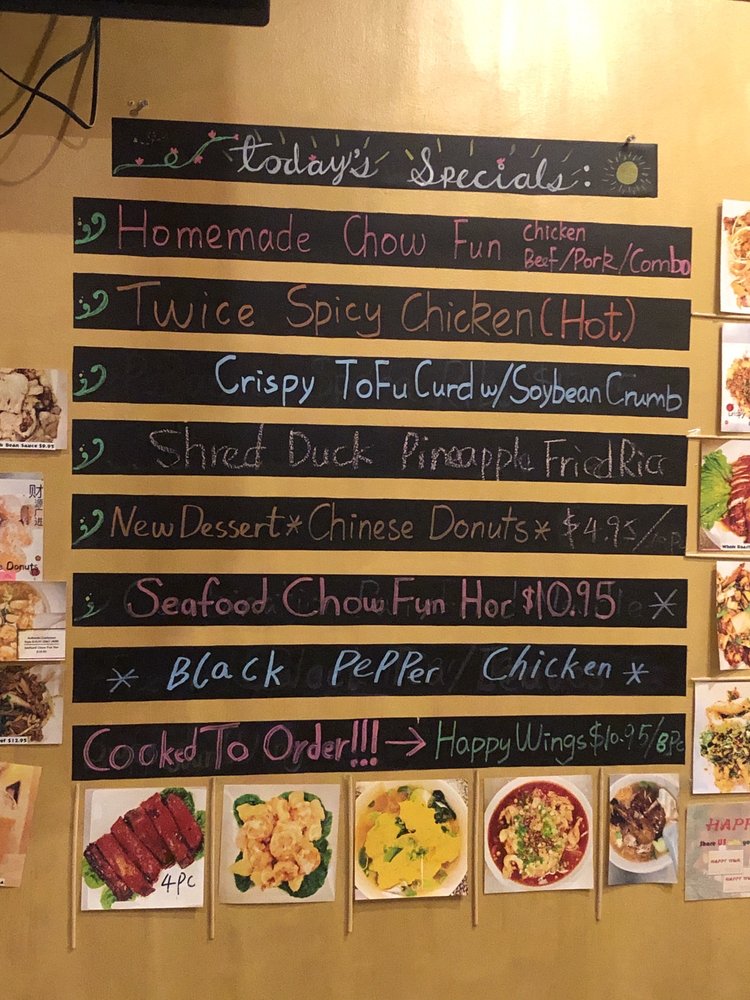 today's Specials:
Homemade Chow Fun chicken
Beef/Pork/Combo
Twice Spicy Chicken (Hot)
Crispy ToFu Curd w/Soybean Crumb
Shred Duck Pineapple Fried Rice
New Dessert * Chinese Donuts * $4.95/10pc
Seafood Chow Fun Hor $10.95 *
* Black Pepper Chicken *
Cooked To Order!!! → Happy Wings $10.95/8pc
4PC
Bean Sauce $9.95
财源广进
Donuts
$12.95
Whole Roast
HAPPY
Share US